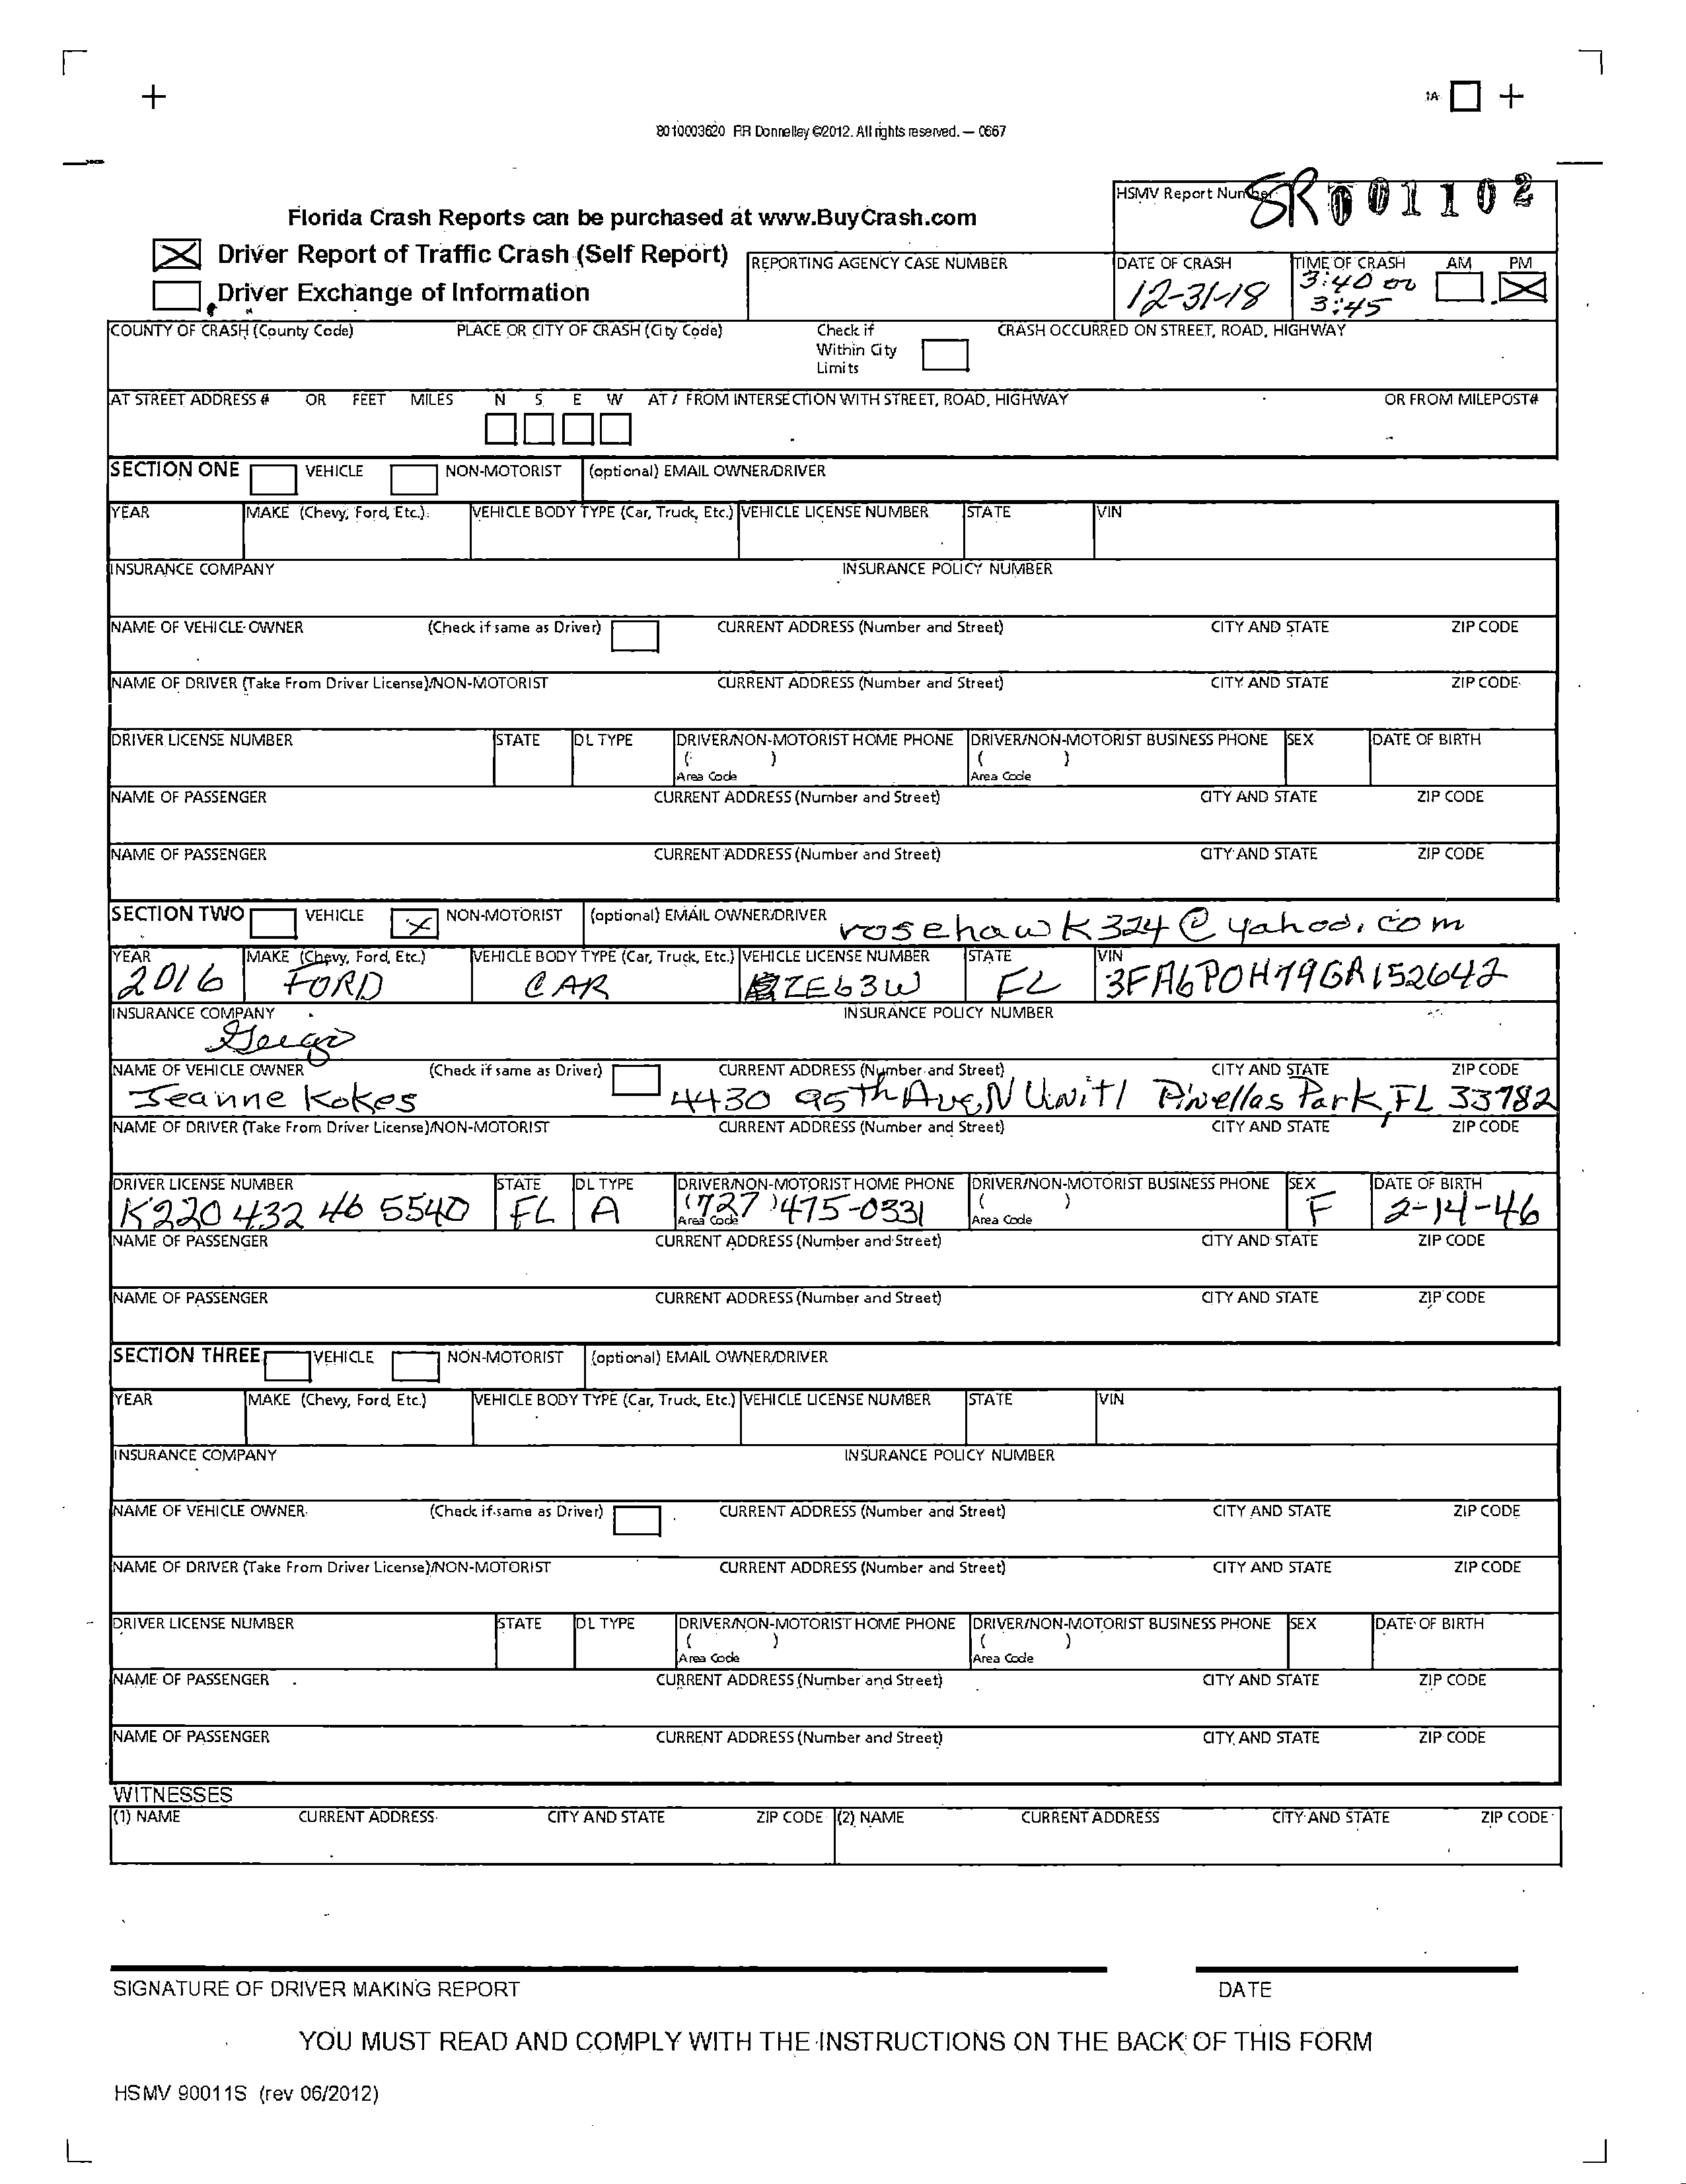 1A
8010003620 RR Donnelley ©2012. All rights reserved. — 0667
HSMV Report Number SR001102
Florida Crash Reports can be purchased at www.BuyCrash.com
Driver Report of Traffic Crash (Self Report)
Driver Exchange of Information
REPORTING AGENCY CASE NUMBER
DATE OF CRASH TIME OF CRASH AM PM
12-31-18 3:40 or 3:45
COUNTY OF CRASH (County Code) PLACE OR CITY OF CRASH (City Code) Check if Within City Limits CRASH OCCURRED ON STREET, ROAD, HIGHWAY
AT STREET ADDRESS # OR FEET MILES N S E W AT / FROM INTERSECTION WITH STREET, ROAD, HIGHWAY OR FROM MILEPOST#
SECTION ONE VEHICLE NON-MOTORIST (optional) EMAIL OWNER/DRIVER
YEAR MAKE (Chevy, Ford, Etc.) VEHICLE BODY TYPE (Car, Truck, Etc.) VEHICLE LICENSE NUMBER STATE VIN
INSURANCE COMPANY INSURANCE POLICY NUMBER
NAME OF VEHICLE OWNER (Check if same as Driver) CURRENT ADDRESS (Number and Street) CITY AND STATE ZIP CODE
NAME OF DRIVER (Take From Driver License)/NON-MOTORIST CURRENT ADDRESS (Number and Street) CITY AND STATE ZIP CODE
DRIVER LICENSE NUMBER STATE DL TYPE DRIVER/NON-MOTORIST HOME PHONE DRIVER/NON-MOTORIST BUSINESS PHONE SEX DATE OF BIRTH
( ) ( )
Area Code Area Code
NAME OF PASSENGER CURRENT ADDRESS (Number and Street) CITY AND STATE ZIP CODE
NAME OF PASSENGER CURRENT ADDRESS (Number and Street) CITY AND STATE ZIP CODE
SECTION TWO VEHICLE X NON-MOTORIST (optional) EMAIL OWNER/DRIVER rosehawk324@yahoo.com
YEAR MAKE (Chevy, Ford, Etc.) VEHICLE BODY TYPE (Car, Truck, Etc.) VEHICLE LICENSE NUMBER STATE VIN
2016 FORD CAR ZE63W FL 3FA6P0H79GR152642
INSURANCE COMPANY INSURANCE POLICY NUMBER
NAME OF VEHICLE OWNER (Check if same as Driver) CURRENT ADDRESS (Number and Street) CITY AND STATE ZIP CODE
Jeanne Kokes 4430 95th Ave, N Unit 1 Pinellas Park, FL 33782
NAME OF DRIVER (Take From Driver License)/NON-MOTORIST CURRENT ADDRESS (Number and Street) CITY AND STATE ZIP CODE
DRIVER LICENSE NUMBER STATE DL TYPE DRIVER/NON-MOTORIST HOME PHONE DRIVER/NON-MOTORIST BUSINESS PHONE SEX DATE OF BIRTH
K220 432 46 5540 FL A (727) 475-0331 ( ) F 2-14-46
Area Code Area Code
NAME OF PASSENGER CURRENT ADDRESS (Number and Street) CITY AND STATE ZIP CODE
NAME OF PASSENGER CURRENT ADDRESS (Number and Street) CITY AND STATE ZIP CODE
SECTION THREE VEHICLE NON-MOTORIST (optional) EMAIL OWNER/DRIVER
YEAR MAKE (Chevy, Ford, Etc.) VEHICLE BODY TYPE (Car, Truck, Etc.) VEHICLE LICENSE NUMBER STATE VIN
INSURANCE COMPANY INSURANCE POLICY NUMBER
NAME OF VEHICLE OWNER (Check if same as Driver) CURRENT ADDRESS (Number and Street) CITY AND STATE ZIP CODE
NAME OF DRIVER (Take From Driver License)/NON-MOTORIST CURRENT ADDRESS (Number and Street) CITY AND STATE ZIP CODE
DRIVER LICENSE NUMBER STATE DL TYPE DRIVER/NON-MOTORIST HOME PHONE DRIVER/NON-MOTORIST BUSINESS PHONE SEX DATE OF BIRTH
( ) ( )
Area Code Area Code
NAME OF PASSENGER CURRENT ADDRESS (Number and Street) CITY AND STATE ZIP CODE
NAME OF PASSENGER CURRENT ADDRESS (Number and Street) CITY AND STATE ZIP CODE
WITNESSES
(1) NAME CURRENT ADDRESS CITY AND STATE ZIP CODE (2) NAME CURRENT ADDRESS CITY AND STATE ZIP CODE
SIGNATURE OF DRIVER MAKING REPORT DATE
YOU MUST READ AND COMPLY WITH THE INSTRUCTIONS ON THE BACK OF THIS FORM
HSMV 90011S (rev 06/2012)